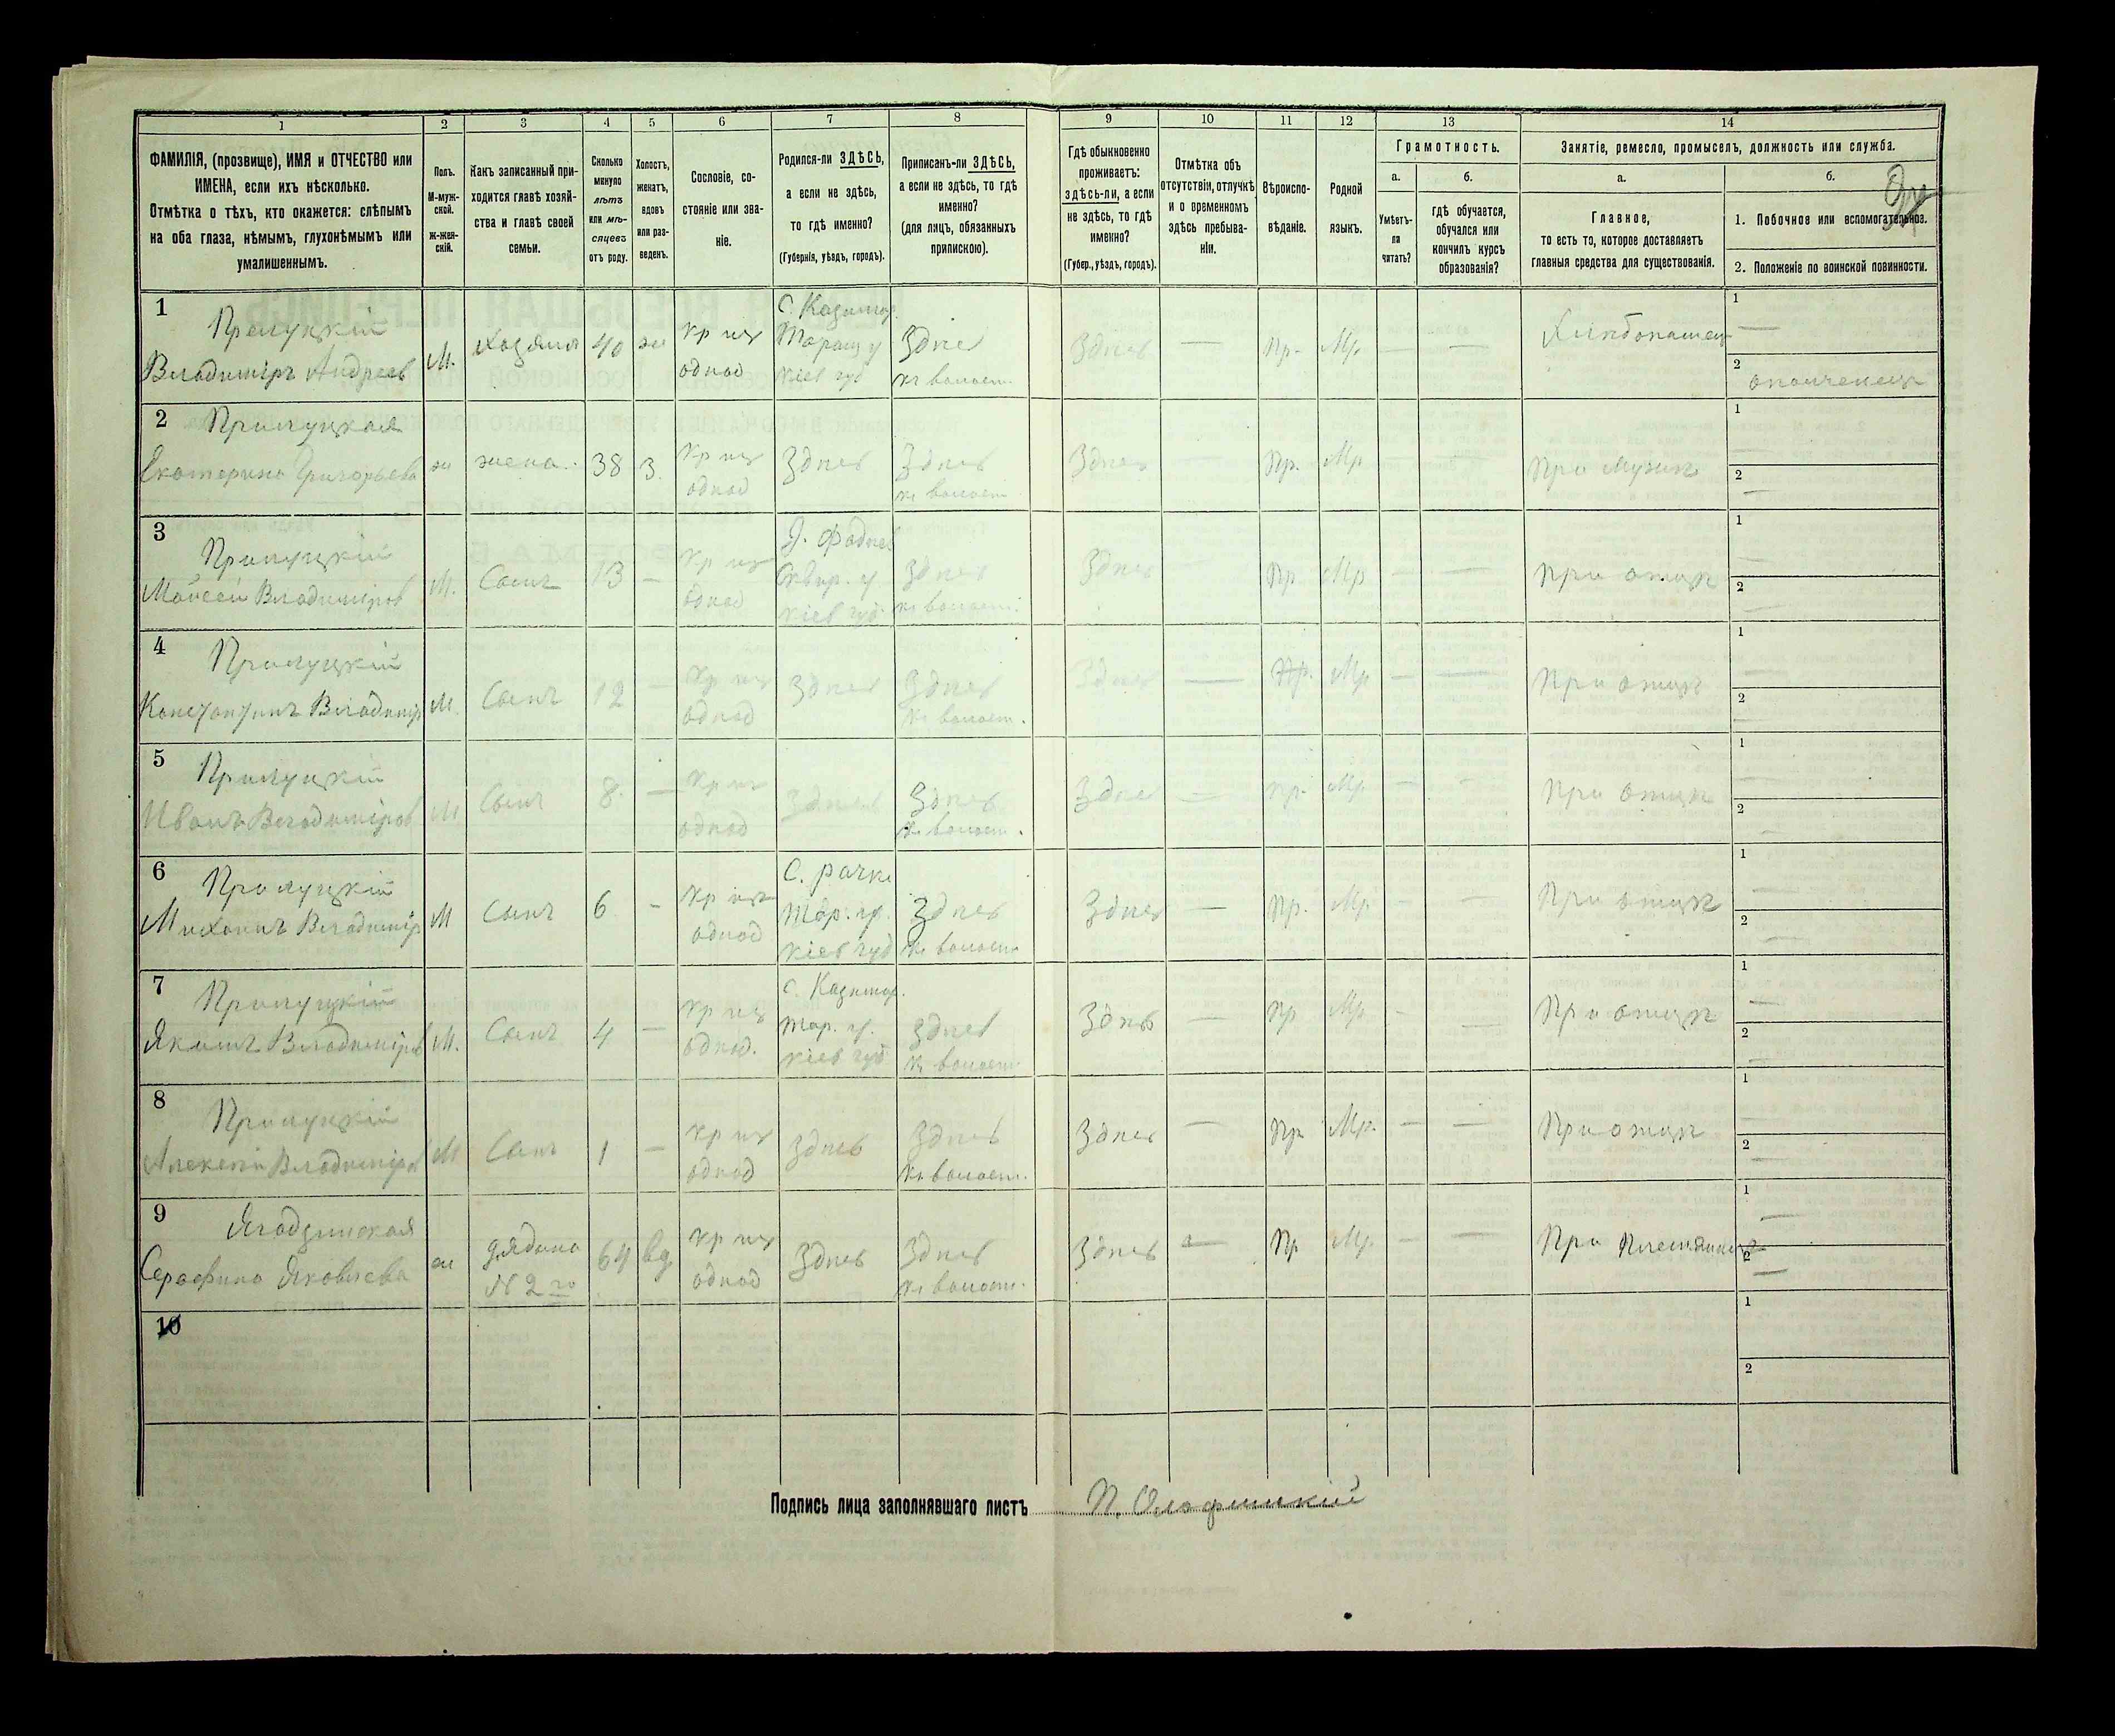 1 2 3 4 5 6 7 8 9 10 11 12 13 14
ФАМИЛІЯ, (прозвище), ИМЯ и ОТЧЕСТВО или
ИМЕНА, если ихъ нѣсколько.
Отмѣтка о тѣхъ, кто окажется: слѣпымъ
на оба глаза, нѣмымъ, глухонѣмымъ или
умалишеннымъ.
Полъ.
М-муж-
ской.
ж-жен-
скій.
Какъ записанный при-
ходится главѣ хозяй-
ства и главѣ своей
семьи.
Сколько
минуло
лѣтъ
или мѣ-
сяцевъ
отъ роду.
Холостъ,
женатъ,
вдовъ
или раз-
веденъ.
Сословіе, со-
стояніе или зва-
ніе.
Родился-ли ЗДѢСЬ,
а если не здѣсь,
то гдѣ именно?
(Губернія, уѣздъ, городъ).
Приписанъ-ли ЗДѢСЬ,
а если не здѣсь, то гдѣ
именно?
(для лицъ, обязанныхъ
припискою).
Гдѣ обыкновенно
проживаетъ:
здѣсь-ли, а если
не здѣсь, то гдѣ
именно?
(Губер., уѣздъ, городъ).
Отмѣтка объ
отсутствіи, отлучкѣ
и о временномъ
здѣсь пребыва-
ніи.
Вѣроиспо-
вѣданіе.
Родной
языкъ.
Грамотность.
а.
Умѣетъ-
ли
читать?
б.
гдѣ обучается,
обучался или
кончилъ курсъ
образованія?
Занятіе, ремесло, промыселъ, должность или служба.
а.
Главное,
то есть то, которое доставляетъ
главныя средства для существованія.
б.
1. Побочное или вспомогательное.
2. Положеніе по воинской повинности.
1
Прилуцкій
Владиміръ Андреев
М. Хозяин 40 ж
кр изъ
однод
Таращ у
Кіев губ
Здѣсь
Здѣсь — Пр. Мр. — —
1 —
2 ополченецъ
2 Прилуцкая
Екатерина Григорьева
ж жена 38 З.
кр изъ
однод
Здѣсь Здѣсь
Здѣсь — Пр. Мр — —
При мужѣ
1
2 —
3
Прилуцкій
Мойсей Владиміров
М. Сынъ 13 —
кр изъ
однод
Сквир. у.
Кіев губ
Здѣсь
Здѣсь — Пр Мр — —
при отцѣ
1 —
2 —
4
Прилуцкій
Константинъ Владимір
М Сынъ 12 —
Кр изъ
однод
Здѣсь Здѣсь
Здѣсь — Пр. Мр — —
При отцѣ
1 —
2
5
Прилуцкій
Иванъ Владиміров
М Сынъ 8 —
Кр изъ
однод
Здѣсь Здѣсь
Здѣсь — Пр. Мр — —
При отцѣ
1 —
2 —
6
Прилуцкій
Михаилъ Владимір
М Сынъ 6 —
Кр изъ
однод
Тар. у.
Кіев губ
Здѣсь
Здѣсь — Пр. Мр. — —
При отцѣ
1 —
2 —
7
Прилуцкій
Якимъ Владиміров
М. Сынъ 4 —
Кр изъ
однод.
Тар. у.
Кіев губ
Здѣсь
Здѣсь — Пр Мр. — —
При отцѣ
1 —
2 —
8
Прилуцкій
Алексѣй Владиміров
М Сынъ 1 —
кр изъ
однод
Здѣсь Здѣсь
Здѣсь — Пр. Мр. — —
При отцѣ
1 —
2 —
9
Ягодзинская
Серафина Яковлева
ж
дядина
№ 2 го
64 вд.
кр изъ
однод
Здѣсь Здѣсь
Здѣсь — Пр Мр. — —
При племянникѣ
1 —
2 —
10
1
2
Подпись лица заполнявшаго листъ